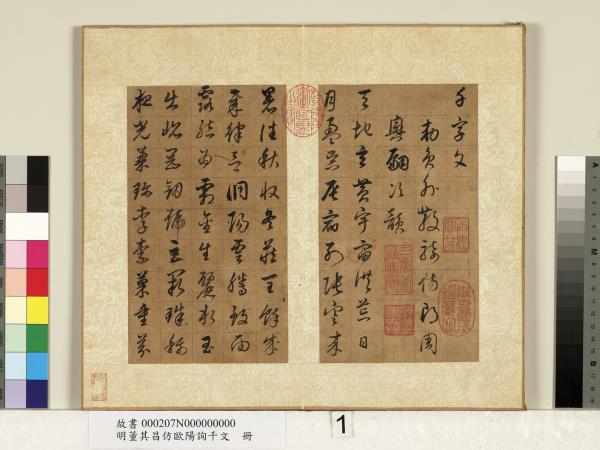 千字文
勅員外散騎侍郎周
興嗣次韻
天地玄黃宇宙洪荒日
月盈昃辰宿列張寒來
暑往秋收冬藏閏餘成
歲律呂調陽雲騰致雨
露結為霜金生麗水玉
出崑岡劍號巨闕珠稱
夜光菓珍李柰菜重芥
故書 000207N000000000
明董其昌仿歐陽詢千文 冊
1
A
M
B